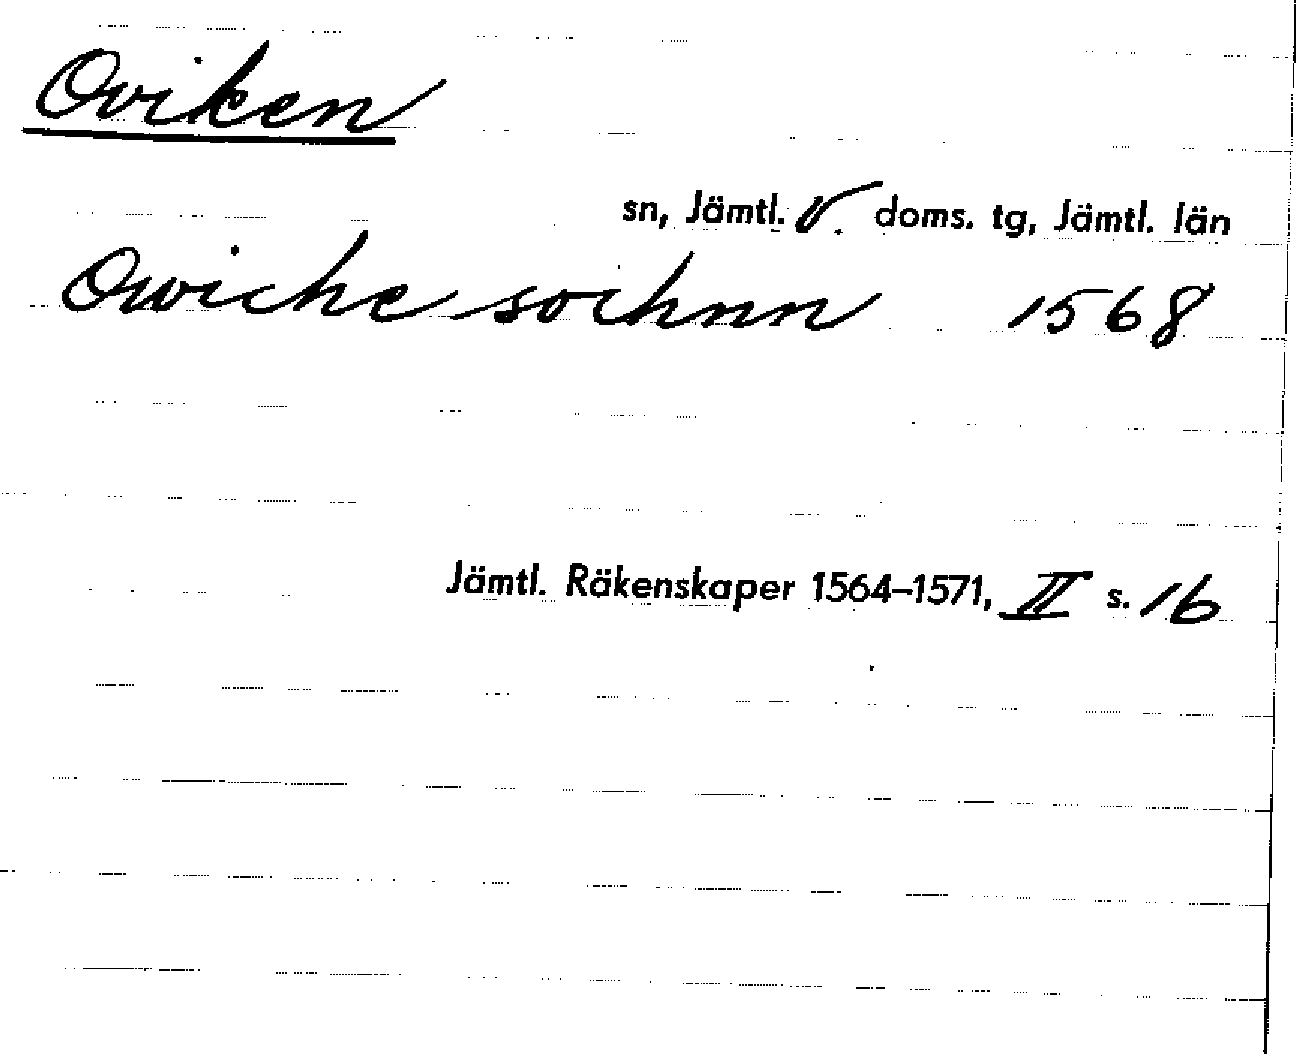 Oviken
sn, Jämtl. v. doms. tg, Jämtl. län
Owiche sochnn 1568
Jämtl. Räkenskaper 1564–1571, II s. 16